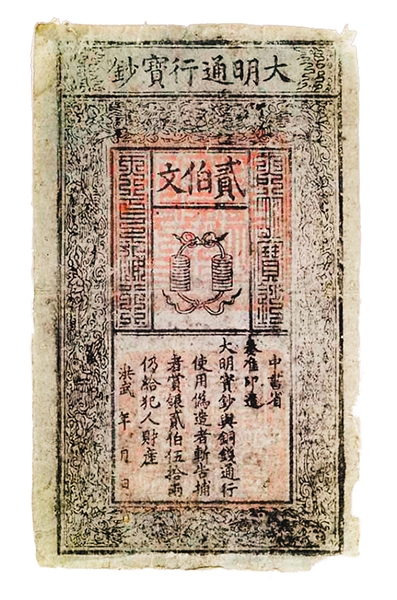 大明通行寶鈔
貳伯文
中書省
奏准印造
大明寶鈔與銅錢通行
使用僞造者斬告捕
者賞銀貳伯伍拾兩
仍給犯人財產
洪武 年 月 日